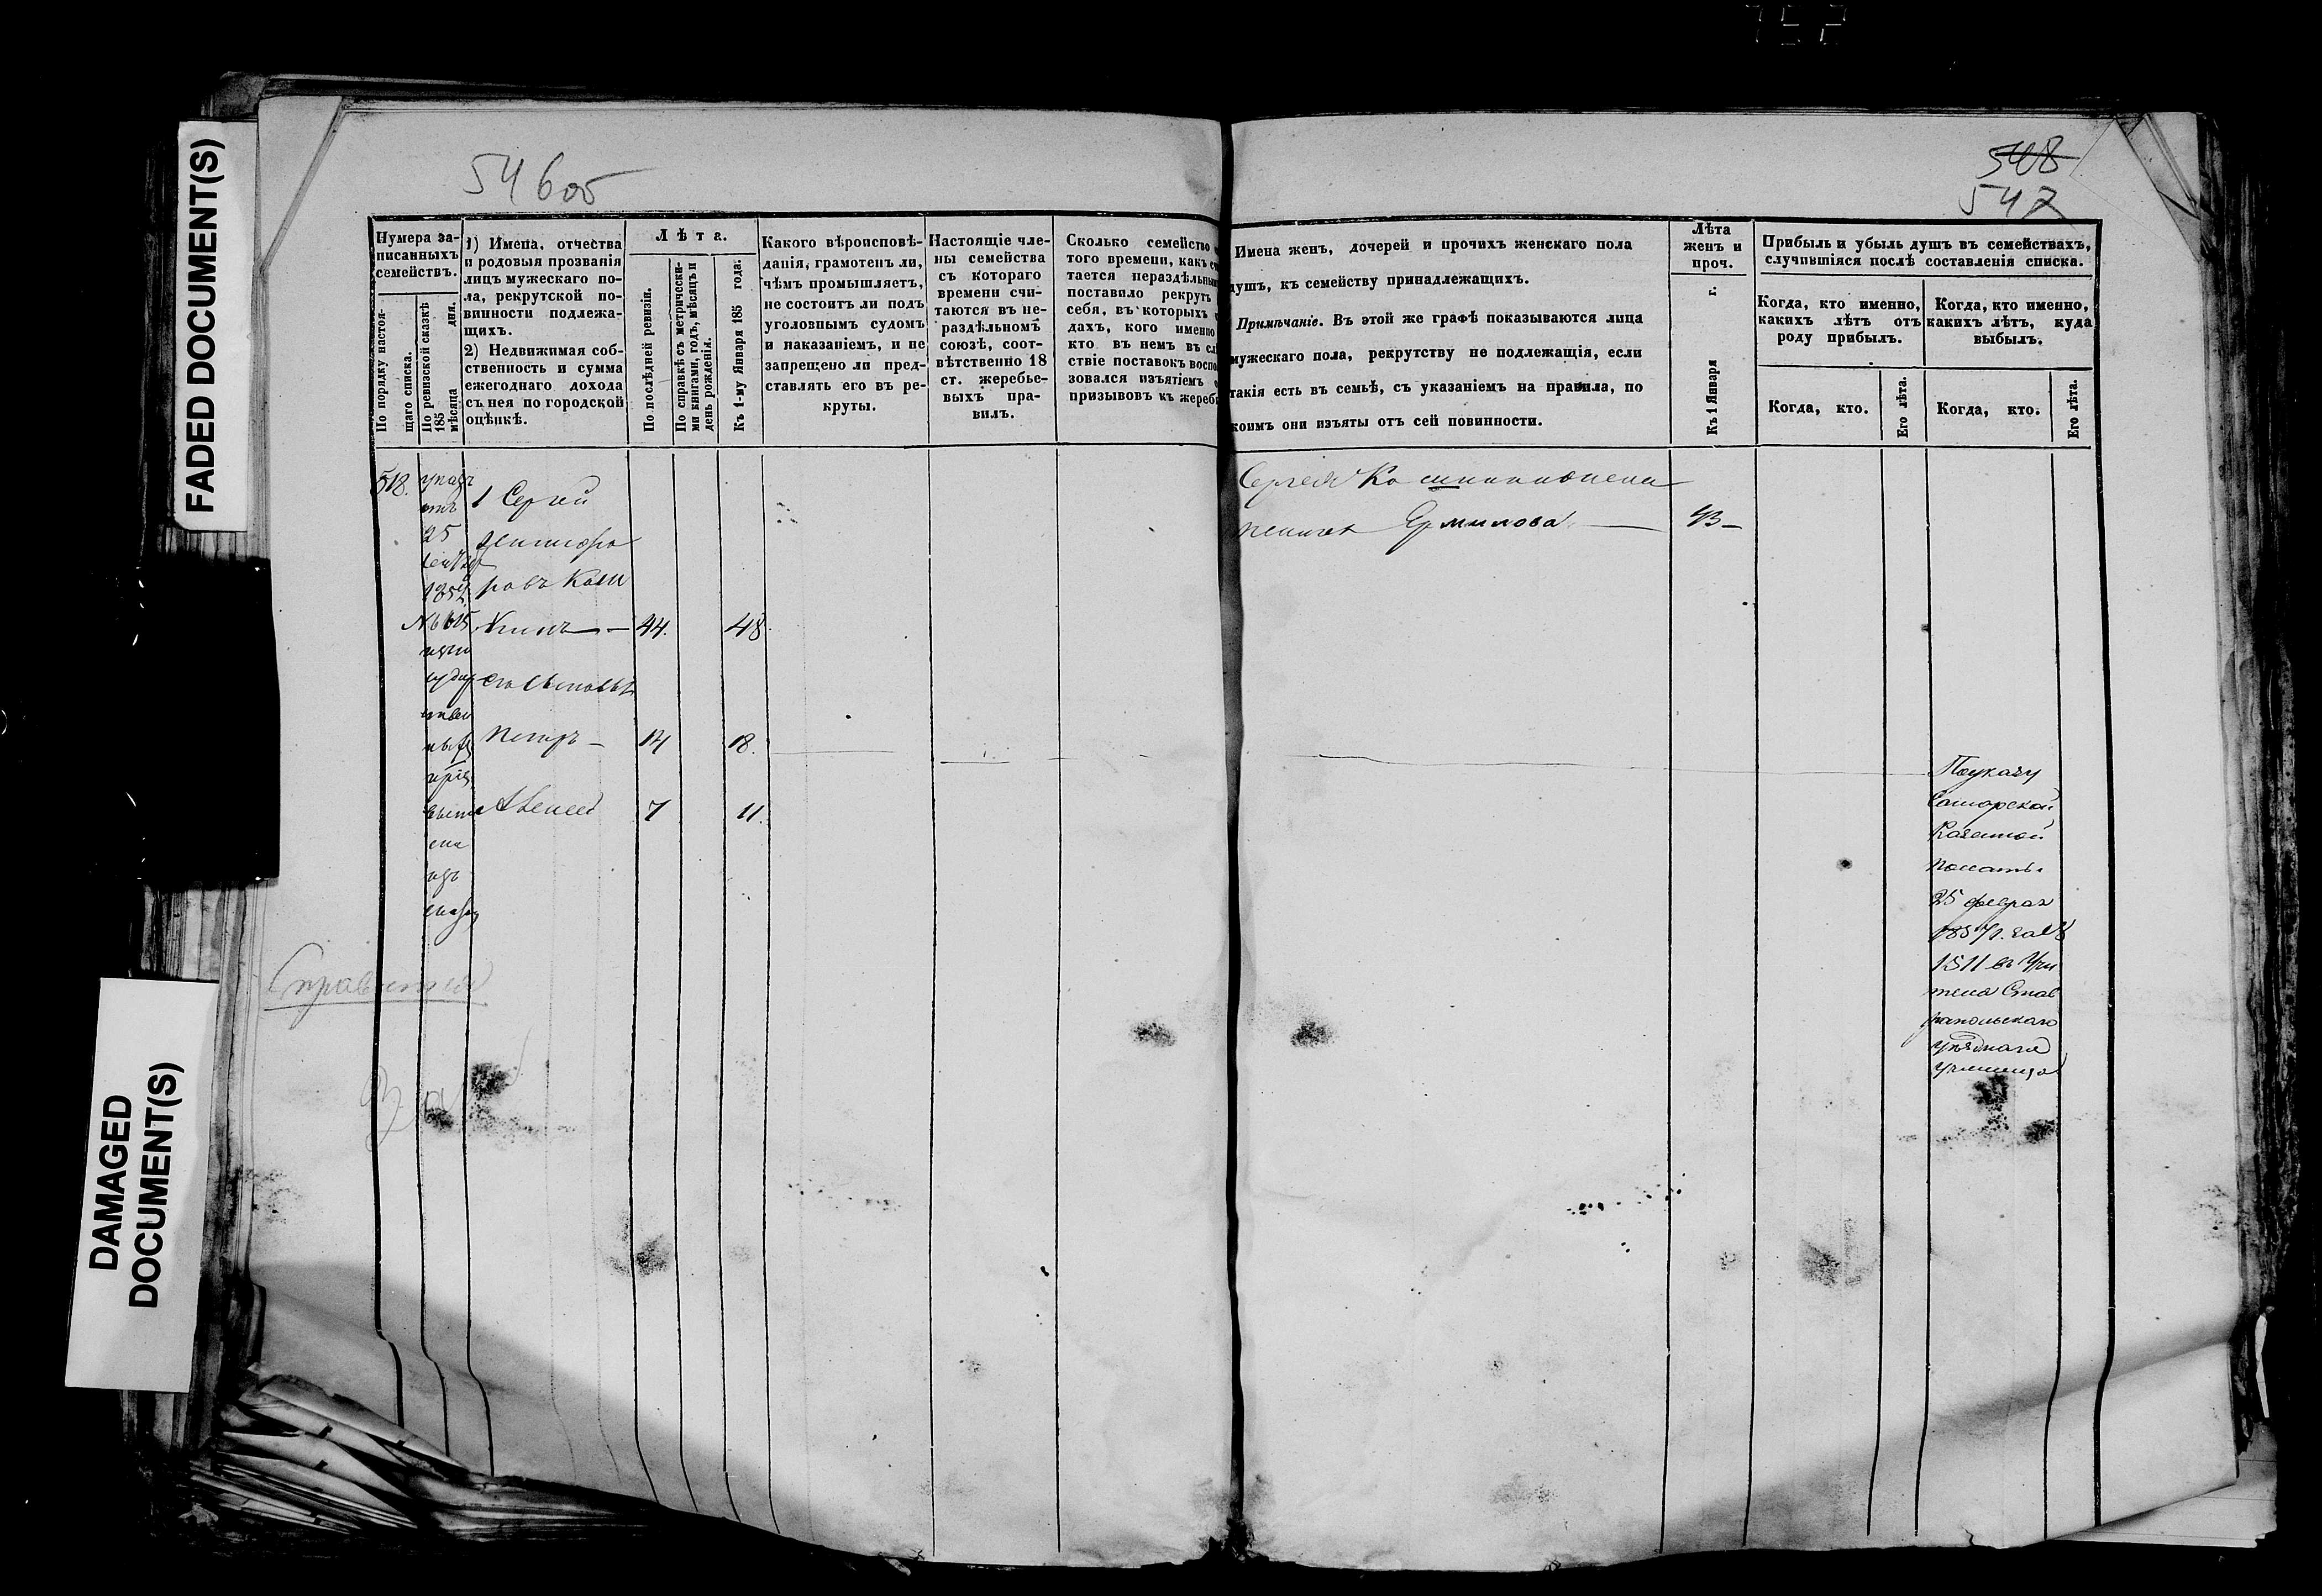 752
FADED DOCUMENT(S)
DAMAGED
DOCUMENT(S)
54 6об
548
547
Нумера за-
писанныхъ
семействъ.
По порядку настоя-
щаго списка.
По ревизской сказкѣ
185 дня.
мѣсяца
1) Имена, отчества
и родовыя прозванія
лицъ мужескаго по-
ла, рекрутской по-
винности подлежа-
щихъ.
2) Недвижимая соб-
ственность и сумма
ежегоднаго дохода
съ нея по городской
оцѣнкѣ.
Лѣта.
По послѣдней ревизіи.
По справкѣ съ метрически-
ми книгами, годъ, мѣсяцъ и
день рожденія.
Къ 1-му Января 185 года.
Какого вѣроисповѣ-
данія, грамотенъ ли,
чѣмъ промышляетъ,
не состоитъ ли подъ
уголовнымъ судомъ
и наказаніемъ, и не
запрещено ли пред-
ставлять его въ ре-
круты.
Настоящіе чле-
ны семейства
съ котораго
времени счи-
таются въ не-
раздѣльномъ
союзѣ, соот-
вѣтственно 18
ст. жеребье-
выхъ пра-
вилъ.
Сколько семейство
того времени, какъ
тается нераздѣльны
поставило рекрутъ
себя, въ которыхъ
дахъ, кого именно
кто въ немъ въ
ствіе поставокъ воспо
зовался изъятіемъ
призывовъ къ жереб
Имена женъ, дочерей и прочихъ женскаго пола
душъ, къ семейству принадлежащихъ.
Примѣчаніе. Въ этой же графѣ показываются лица
мужескаго пола, рекрутству не подлежащія, если
такія есть въ семьѣ, съ указаніемъ на правила, по
коимъ они изъяты отъ сей повинности.
Лѣта
женъ и
проч.
Къ 1 Января г.
Прибыль и убыль душъ въ семействахъ,
случившіяся послѣ составленія списка.
Когда, кто именно,
какихъ лѣтъ отъ
роду прибылъ.
Когда, кто именно,
какихъ лѣтъ, куда
выбылъ.
Когда, кто.
Его лѣта.
Когда, кто.
Его лѣта.
518. указ
отъ
25
1 Сергей
ровъ
44. 48
его сыновья
Петръ 14 18.
Алексей 7 11.
изъ
Сергея
жена Ермилова 43
По указу
Самарской
Казенной
Палаты
25 феврал
1857 г. за №
1511 въ Учи
теля Став
ропольскаго
уѣзднаго
училища